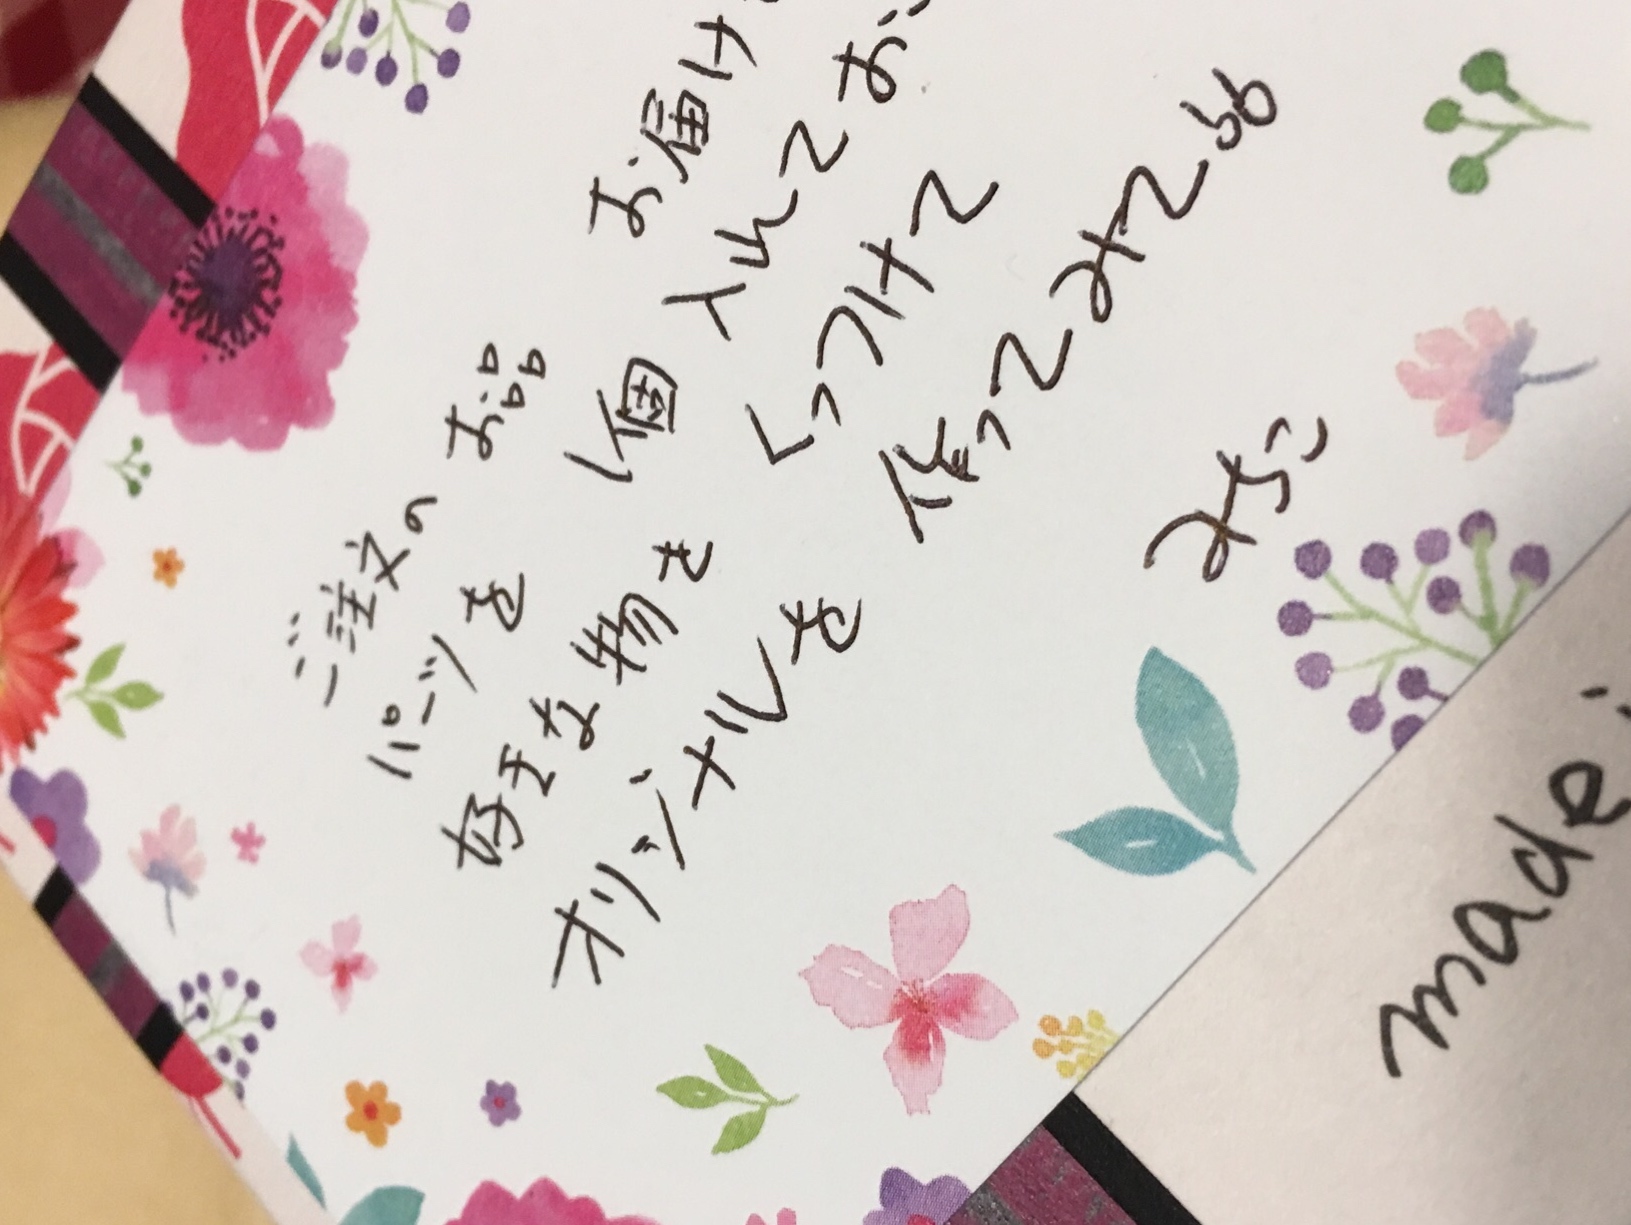 ご注文の お品 お届け
パーツを 1個 入れてお
好きな物を くっつけて
オリジナルを 作ってみてね
made